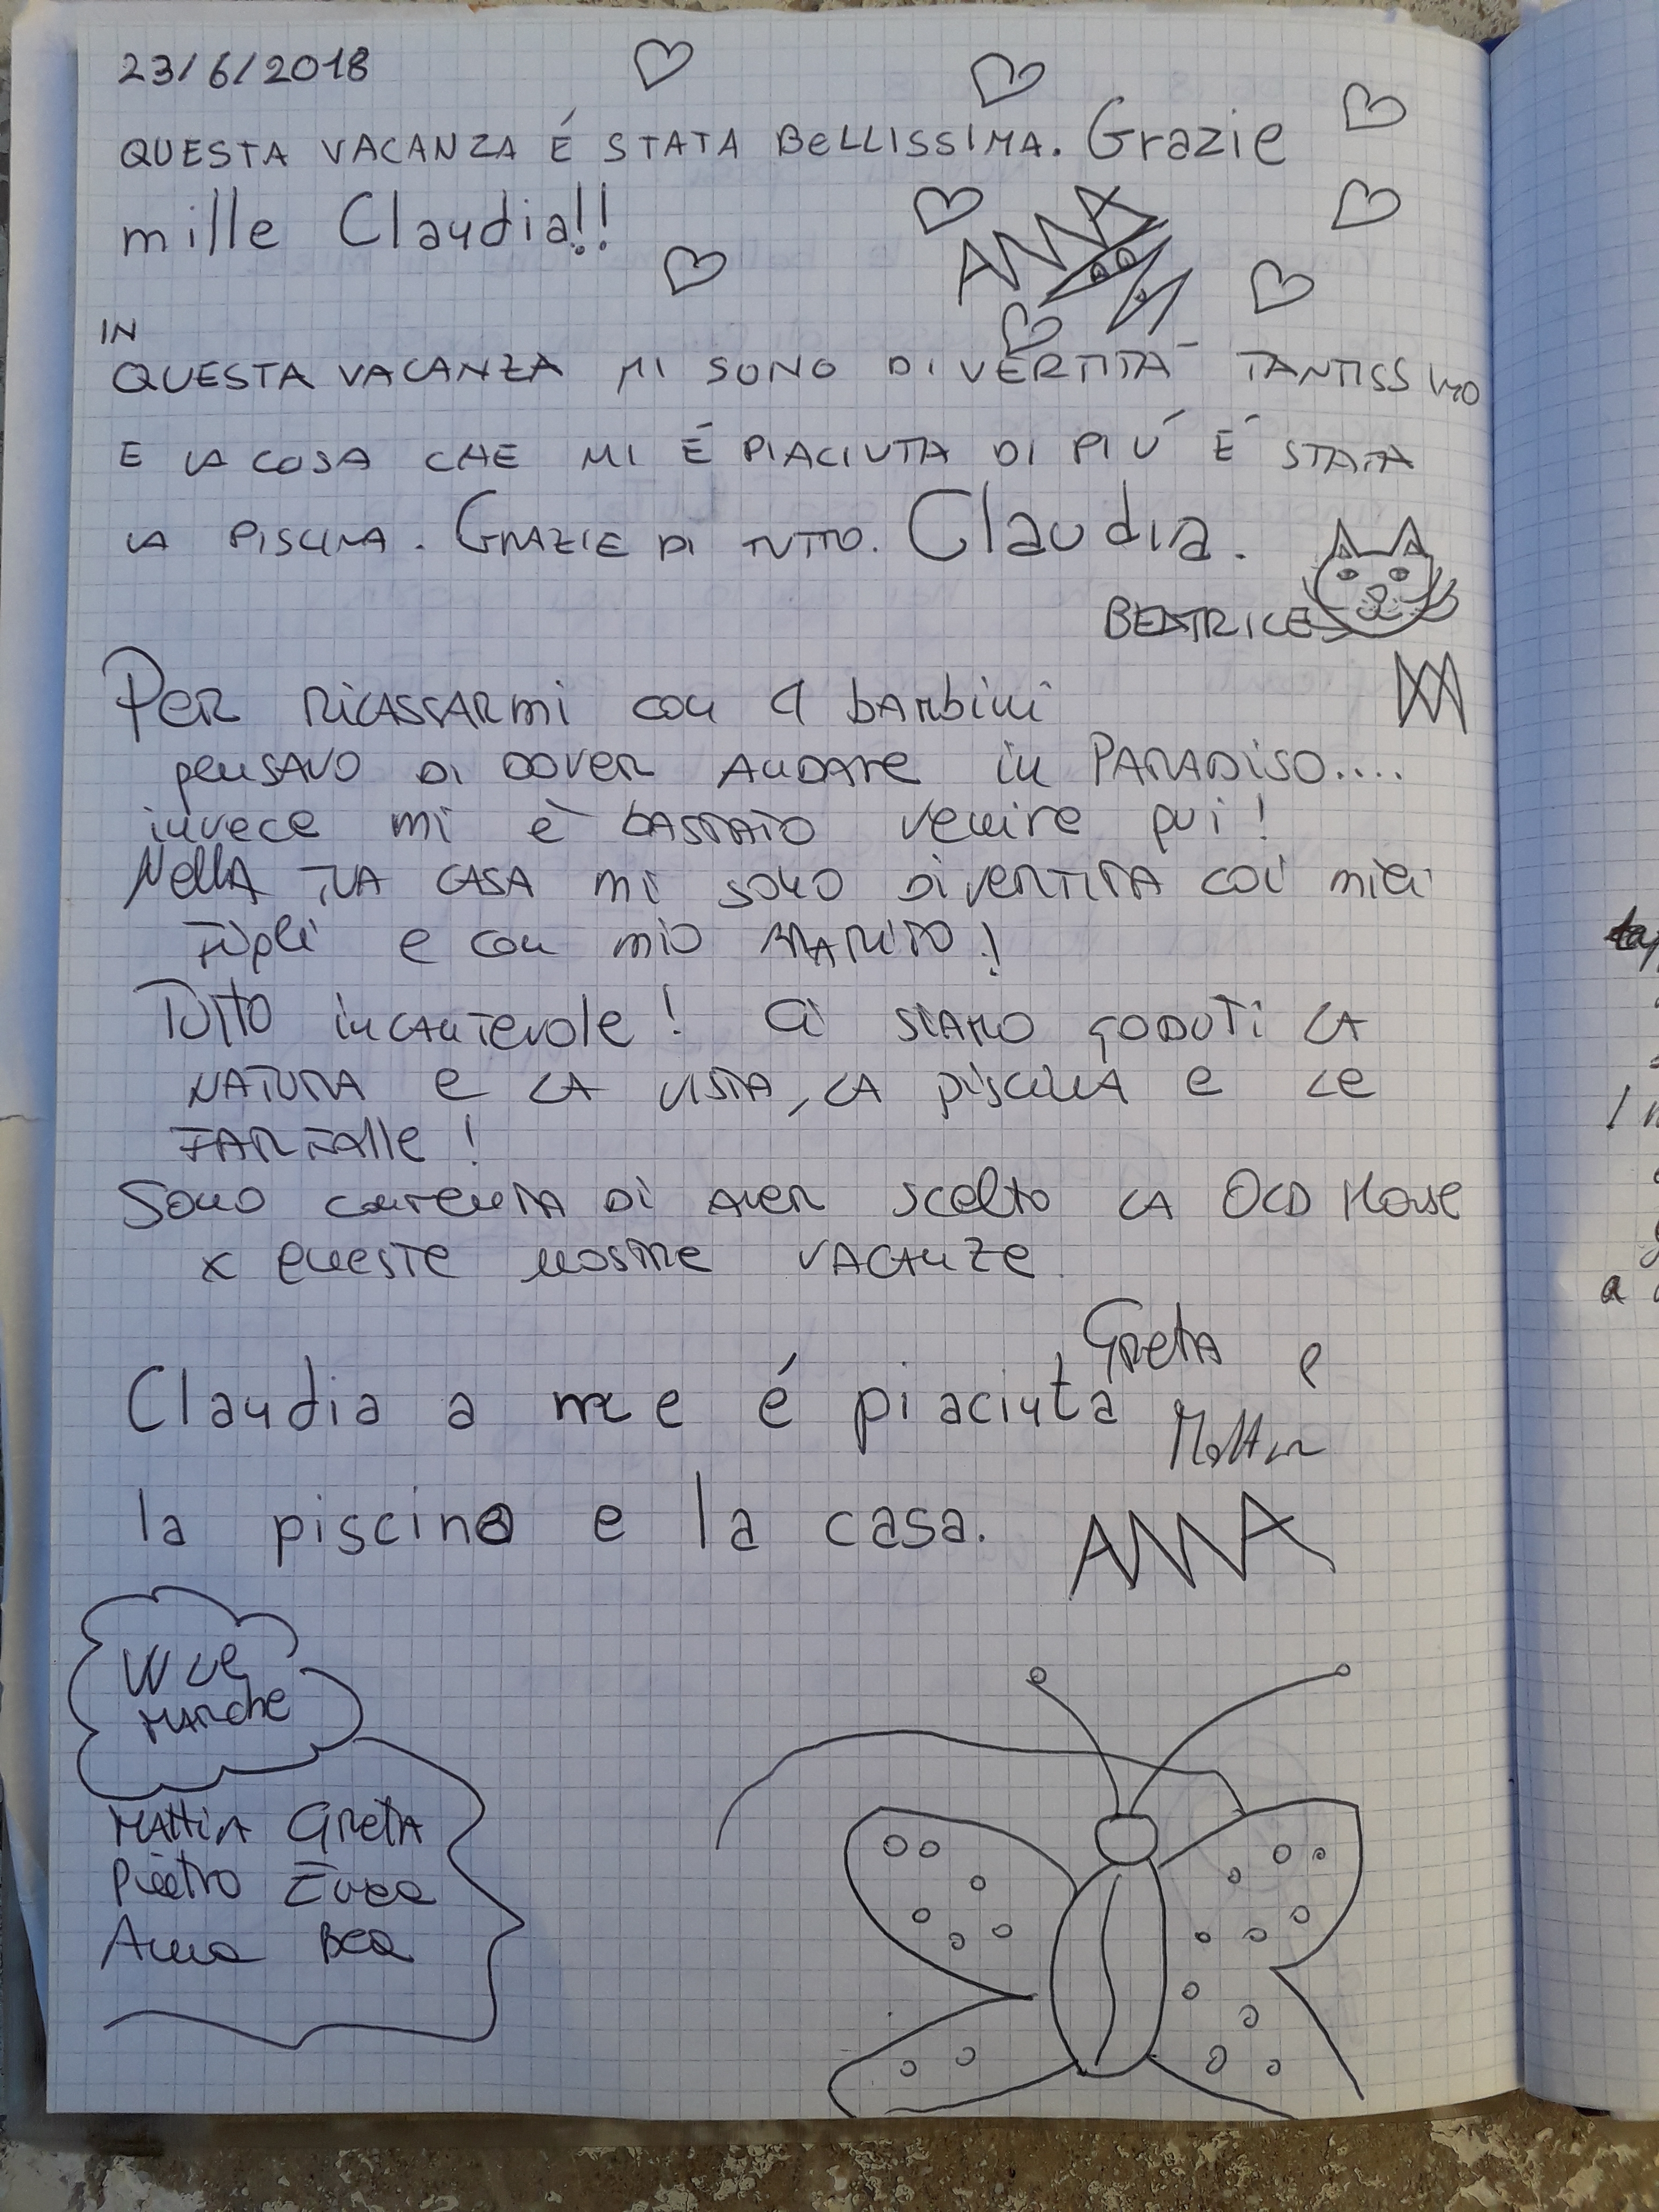 23/6/2018
QUESTA VACANZA É STATA BELLISSIMA. Grazie
mille Claudia!!
ANNA
IN
QUESTA VACANZA MI SONO DIVERTITA TANTISSIMO
E LA COSA CHE MI É PIACIUTA DI PIÚ É STATA
LA PISCINA. GRAZIE DI TUTTO. Claudia.
BEATRICE
PER RILASSARMI con 4 bambini
pensavo di dover andare in PARADISO....
invece mi è bastato venire qui!
Nella tua casa mi sono divertita coi miei
figli e con mio marito!
Tutto incantevole! Ci siamo goduti la
natura e la vista, la piscina e le
farfalle!
Sono contenta di aver scelto la Old House
x queste nostre vacanze
Greta e
Mattia
Claudia a me é piaciuta
la piscina e la casa. ANNA
W le
Marche
Mattia Greta
Pietro
Anna Bea